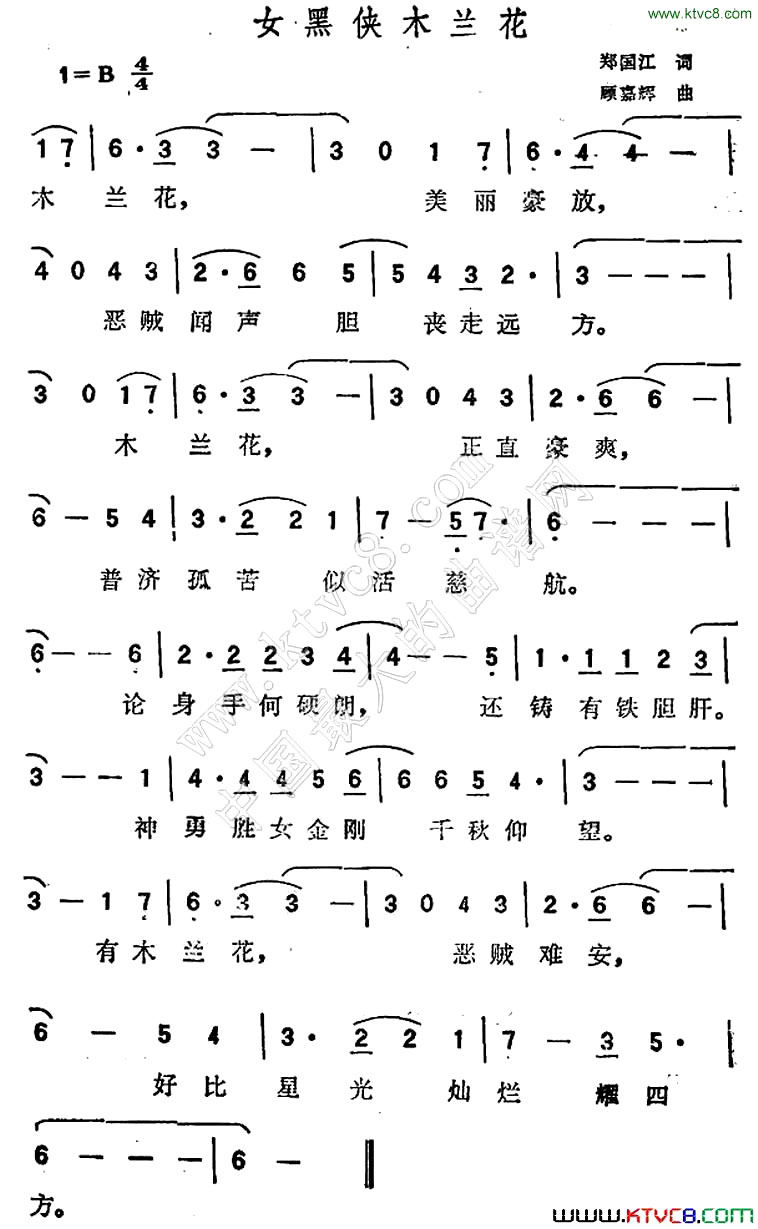 www.ktvc8.com
女黑侠木兰花
1=B 4/4
郑国江 词
顾嘉辉 曲
1 7 | 6 · 3 3 — | 3 0 1 7 | 6 · 4 4 — |
木 兰 花, 美 丽 豪 放,
4 0 4 3 | 2 · 6 6 5 | 5 4 3 2 · | 3 — — — |
恶 贼 闻 声 胆 丧 走 远 方。
3 0 1 7 | 6 · 3 3 — | 3 0 4 3 | 2 · 6 6 — |
木 兰 花, 正 直 豪 爽,
6 — 5 4 | 3 · 2 2 1 | 7 — 5 7 · | 6 — — — |
普 济 孤 苦 似 活 慈 航。
6 — — 6 | 2 · 2 2 3 4 | 4 — — 5 | 1 · 1 1 2 3 |
论 身 手 何 硕 朗, 还 铸 有 铁 胆 肝。
3 — — 1 | 4 · 4 4 5 6 | 6 6 5 4 · | 3 — — — |
神 勇 胜 女 金 刚 千 秋 仰 望。
3 — 1 7 | 6 · 3 3 — | 3 0 4 3 | 2 · 6 6 — |
有 木 兰 花, 恶 贼 难 安,
6 — 5 4 | 3 · 2 2 1 | 7 — 3 5 · |
好 比 星 光 灿 烂 耀 四
6 — — — | 6 — — ‖
方。
www.ktvc8.com
中国最大的曲谱网
WWW.KTVC8.COM